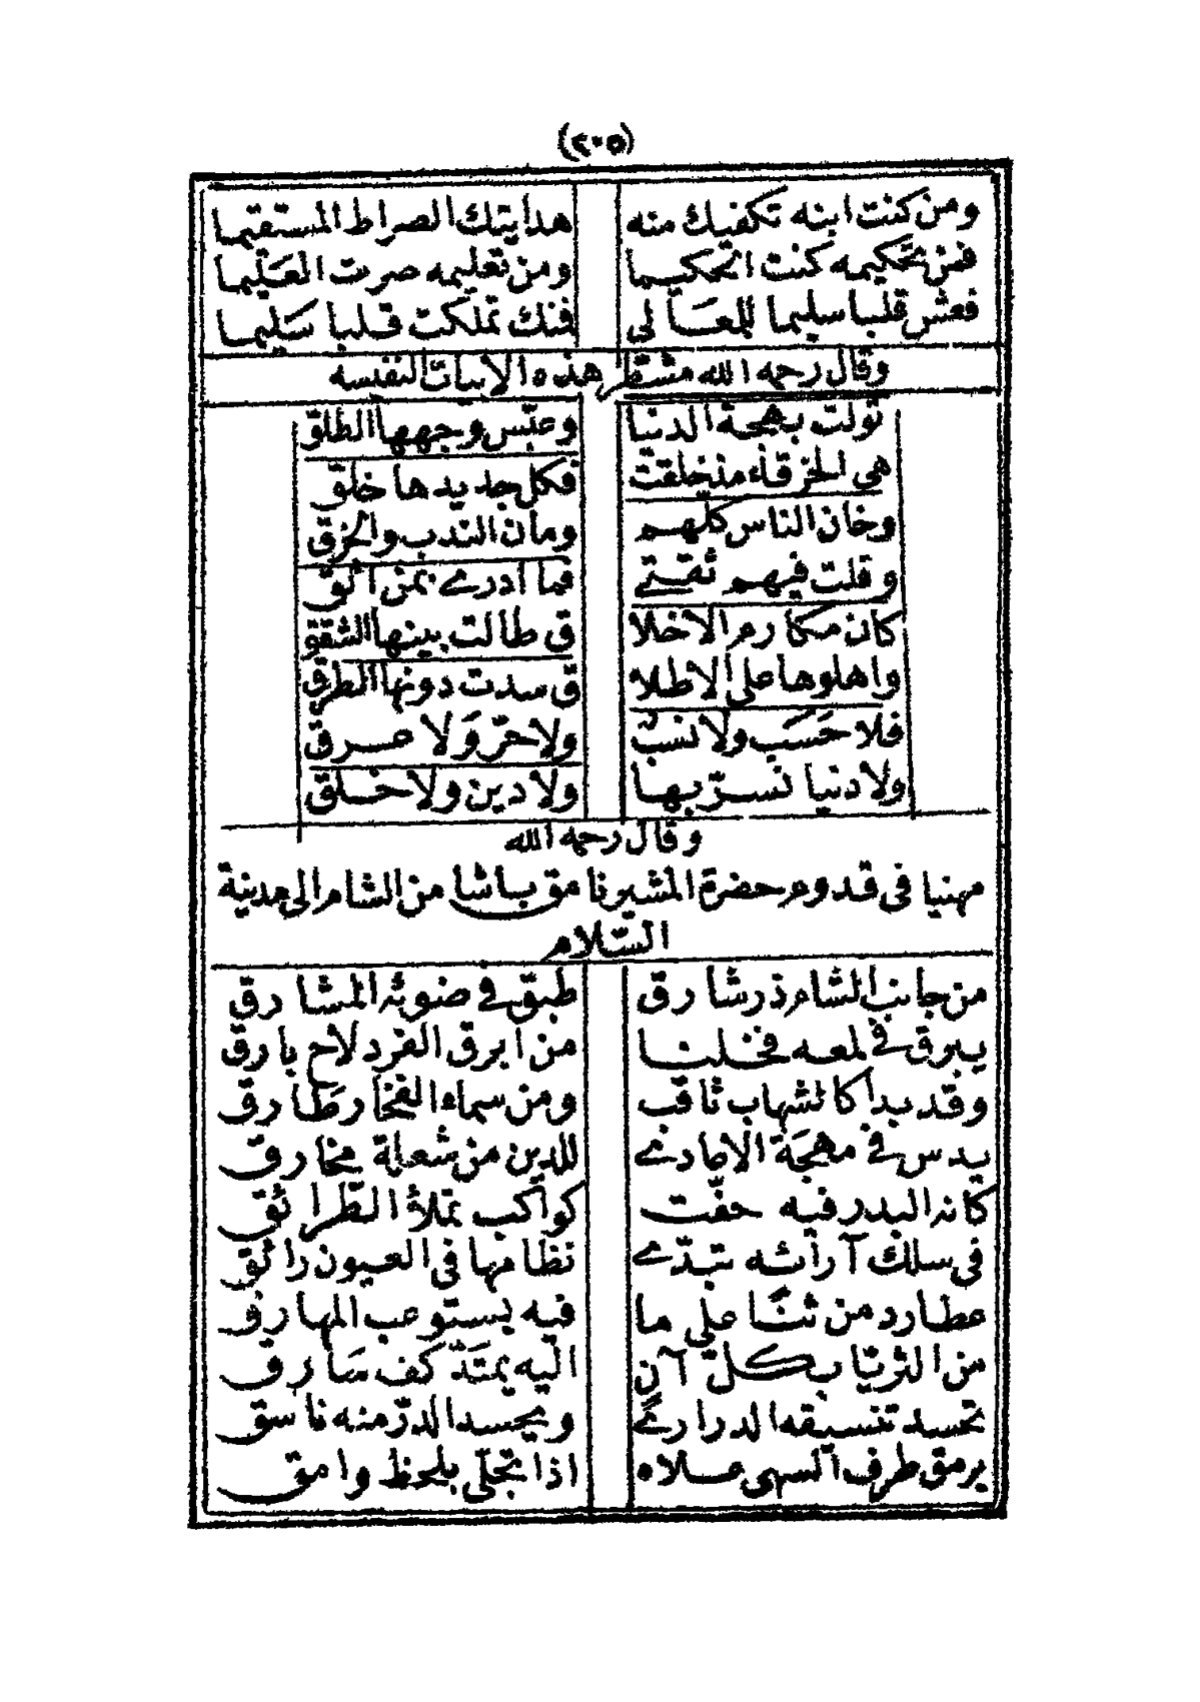 (٢٠٥)
ومن كنت ابنه تكفيك منه هدايتك الصراط المستقيما
فمن تحكيمه كنت الحكيما ومن تعليمه صرت العليما
فعش قلبا سليما للمعالى فمنك تملكت قلبا سليما
وقال رحمه الله مشطر هذه الابيات النفيسه
تولت بهجة الدنيا وعبس وجهها الطلق
هى الخرقاء منذ خلقت فكل جديدها خلق
وخان الناس كلهم ومان الندب والخرق
وقلت فيهم ثقتى فما ادرى بمن اثق
كان مكارم الاخلا ق طالت بينها الشقق
واهلوها على الاطلا ق سدت دونها الطرق
فلا حسب ولا نسب ولا حر ولا عرق
ولا دنيا نسر بها ولا دين ولا خلق
وقال رحمه الله
مهنيا فى قدوم حضرة المشير نامق باشا من الشام الى مدينة
السلام
من جانب الشام ذر شارق طبق فى ضوئه المشارق
يبرق فى لمعه فخلنا من ابرق الفرد لاح بارق
وقد بدا كالشهاب ثاقب ومن سماء الفخار طارق
يدس فى مهجة الاعادى للدين من شعلة مخارق
كانه البدر فيه حفت كواكب تملأ الطرائق
فى سلك آرائه تبدى نظامها فى العيون رائق
عطارد من ثنا على ما فيه يستوعب المهارق
من الثريا بكل آن اليه يمتد كف سارق
تحسد تنسيقه الدرارى ويحسد الدر منه ناسق
يرمق طرف السهى علاه اذا تجلى بلحظ وامق